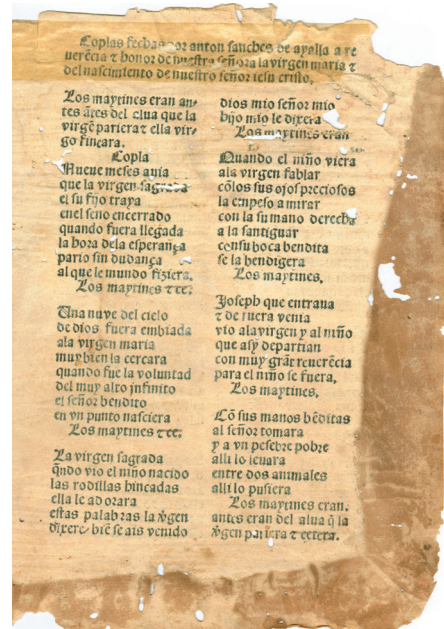 Coplas fechas por anton sanches de ayalla a re
uerẽcia ⁊ honor de nuestra señora la virgen maria ⁊
del nascimiento de nuestro señor iesu cristo.
Los maytines eran an-
tes ãtes del alua que la
virgẽ pariera ⁊ ella vir-
go fincara.
Copla
Nueue meses auia
que la virgen sagrada
el su fijo traya
en el seno encerrado
quando fuera llegada
la hora dela esperança
pario sin dudança
al que le mundo fiziera.
Los maytines ⁊ ce.
Una nuve del cielo
de dios fuera embiada
ala virgen maria
muy bien la cercara
quando fue la voluntad
del muy alto infinito
el señor bendito
en vn punto nasciera
Los maytines ⁊ ce.
La virgen sagrada
q̃ndo vio el niño nacido
las rodillas hincadas
ella le adorara
estas palabras la ṽgen
dixere biẽ seais venido
dios mio señor mio
hijo mio le dixera
Los maytines eran
Quando el niño viera
ala virgen fablar
cõlos sus ojos preciosos
la empeso a mirar
con la su mano derecha
a la santiguar
con su boca bendita
se la bendigera
Los maytines.
Joseph que entraua
⁊ de fuera venia
vio ala virgen y al niño
que asy departian
con muy grãt reuerẽcia
para el niño se fuera.
Los maytines.
Cõ sus manos bẽditas
al señor tomara
y a vn pesebre pobre
alli lo leuara
entre dos animales
alli lo pusiera
Los maytines eran.
antes eran del alua q̃ la
ṽgen pariera ⁊ cetera.